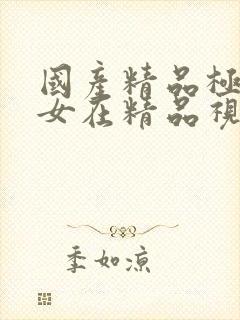 國產精品極
女在精品視
季如涼